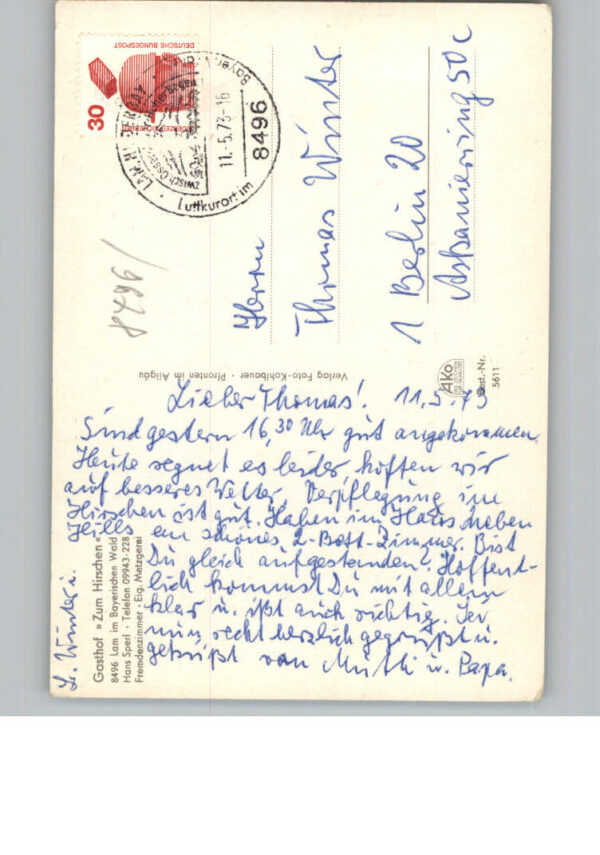 Lieber Thomas! 11.5.73
Sind gestern 16,30 Uhr gut angekommen.
Heute regnet es leider hoffen wir
auf besseres Wetter. Verpflegung im
Hirschen ist gut. Haben im Haus neben
Hills ein schönes 2-Bett-Zimmer. Bist
Du gleich aufgestanden? Hoffent-
lich kommst Du mit allem
klar u. ißt auch richtig. Sei
nun recht herzlich gegrüßt u.
geküßt von Mutti u. Papa.
Winter
Gasthof »Zum Hirschen«
8496 Lam im Bayerischen Wald
Hans Sperl · Telefon 09943-228
Fremdenzimmer · Eig. Metzgerei
Verlag Foto-Kohlbauer · Pfronten im Allgäu
AKO
Best.-Nr.
5611
Herrn
Thomas Winter
1 Berlin 20
Askanierring 50c
8496/
30
DEUTSCHE BUNDESPOST
8496
11.-5.73-16
Luftkurort im